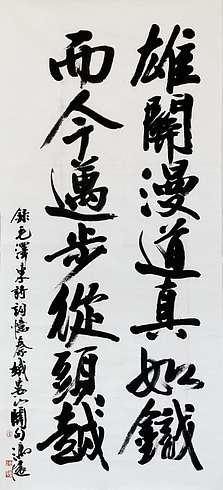 雄關漫道真如鐵
而今邁步從頭越
錄毛澤東詩詞憶秦娥婁山關句